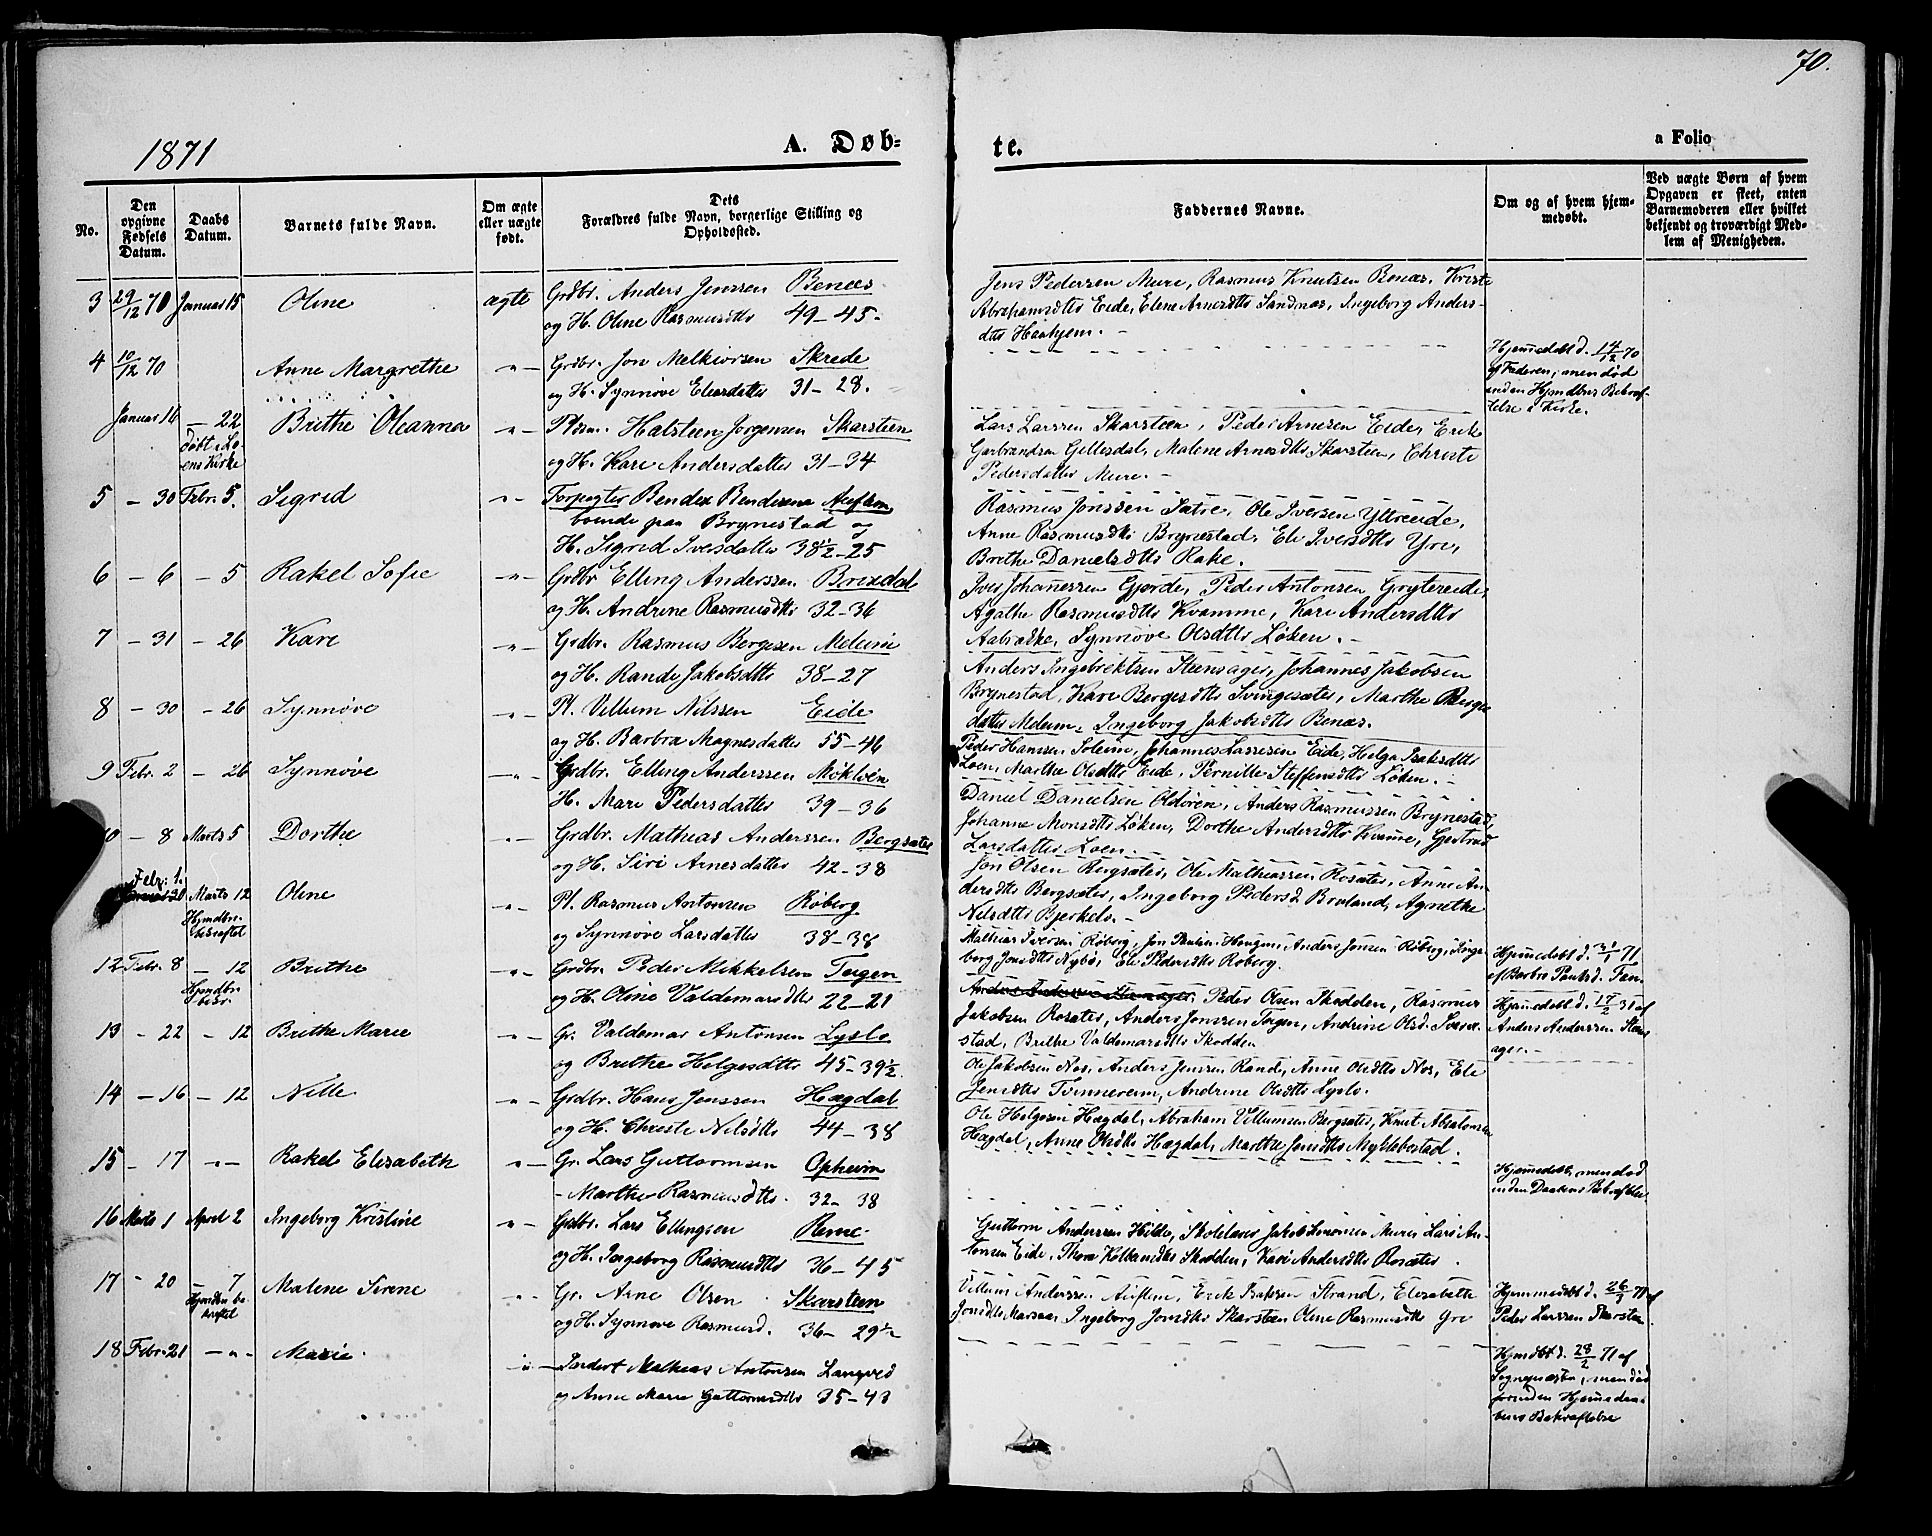 70.
1871
A. Døb=
te.
a Folio
No.
Den opgivne Fødsels Datum.
Daabs Datum.
Barnets fulde Navn.
Om ægte eller uægte født.
Dets Forældres fulde Navn, borgerlige Stilling og Opholdssted.
Faddernes Navne.
Om og af hvem hjemmedøbt.
Ved uægte Børn af hvem Opgaven er skeet, enten Barnemoderen eller hvilket bekjendt og troværdigt Medlem af Menigheden.
3 29/12 70 Januar 15 Oline ægte Grdbr. Anders Jenssen Benæs
og H. Oline Rasmusdtts 49-45-
Jens Pedersen Mure, Rasmus Knutsen Benæs, Kriste
Abrahamsdtts Eide, Elene Arnesdtts Sandnæs, Ingeborg Anders-
dtts Haahjem. -
4 10/12 70 Anne Margrethe -"- Grdbr. Jon Melkiorsen Skrede
og H. Synnøve Eliasdatter 31-28.
Hjemmedøbt d. 14/12 70
af Faderen, men død
inden Hjmdbns Bekræf-
telse i Kirke.
Januar 16 - 22 Brithe Oleanna -"- Pldsm. Halsteen Jørgensen Skarsteen
døbt i Lo-
ens Kirke
og H. Kari Andersdatter 31-34
Lars Larssen Skarsteen, Peder Arnesen Eide, Erik
Garbrandsen Gillesdal, Malene Arnesdtts Skarsteen, Christi
Pedersdatter Mure. -
5 - 30 Febr. 5. Sigrid -"- Forpagter Bendix Bendixens Auflem
boende paa Brynestad og
H. Sigrid Iversdatter 38½-25
Rasmus Jonssen Sætre, Ole Iversen Yttreeide,
Anne Rasmusdtts Brynestad, Eli Iversdtts Yri,
Brithe Danielsdtts Rake.
6 - 6 - 5 Rakel Sofie -"- Grdbr Elling Anderssen Brixdal
og H. Andrine Rasmusdtts 32-36
Iver Johannessen Gjørde, Peder Antonsen Grytereide,
Agathe Rasmusdtts Kvamme, Kari Andersdtts
Aabrække, Synnøve Olsdtts Løken. -
7 - 31 - 26 Kari -"- Grdbr. Rasmus Børgesen Meleim
og H. Randi Jakobsdtts 38-27
Anders Ingebriktsen Steensager, Johannes Jakobsen
Brynestad, Kari Børgesdtts Svingesæter, Marthe Børge
datter Meleim, Ingeborg Jakobsdtts Benæs.
8 - 30 - 26 Synnøve -"- Pl. Villum Nilssen Eide
og H. Barbra Magnesdatter 55-46
Peder Hanssen Soleim, Johannes Lassesen Eide, Helga Isaksdtts
Loen, Marthe Olsdtts Eide, Pernille Steffensdtts Løken. -
9 Febr. 2 - 26 Synnøve -"- Grdbr. Elling Anderssen Møklein
H. Mari Pedersdatter 39-36
Daniel Danielsen Oldøren, Anders Rasmussen Brynestad,
Johanne Monsdtts Løken, Dorthe Andersdtts Kvame, Gjertrud
Larsdatter Loen. -
10 - 8 Marts 5 Dorthe -"- Grdbr. Mathias Anderssen Bergsæter
og H. Siri Arnesdatter 42-38
Jon Olsen Bergsæter, Ole Mathiassen Rosæter, Anne An-
dersdtts Bergsæter, Ingeborg Pedersd Bruland, Agnethe
Nilsdtts Bjerkelo. -
Febr. 1. Marts 12 Oline -"- Pl. Rasmus Antonsen Røberg
Hjmdbn.
bekræftet
og Synnøve Larsdatter 38-38
Mathias Iversen Røberg, Jon Paulsen Haugen, Anders Jonsen Røberg, Inge-
borg Jonsdtts Nybø, Eli Pedersdtts Røberg.
Hjemmedøbt d. 31/1 71
af Barbro Paulsd.
12 Febr. 8 - 12 Brithe -"- Grdbr. Peder Mikkelsen Tergen
Hjmdbn
bekr.
og H. Oline Valdemarsdtts 22-21
Peder Olsen Skodden, Rasmus
Jakobsen Rosæter, Anders Jonssen Tergen, Andrine Olsd.
stad, Brithe Valdemarsdtts Skodden
Hjemmedøbt d. 17/2 af
Anders Anderssen Steens-
ager. -
13 - 22 - 12 Brithe Marie -"- Gr. Valdemar Antonsen Lyslo
og Brithe Helgesdtts 45-39½.
Ole Jakobsen Nos, Anders Jenssen Rand, Anne Olsdtts Nos, Eli
Jensdtts Tvinnereim, Andrine Olsdtts Lyslo.
14 - 16 - 12 Nille -"- Grdbr. Hans Jenssen Hægdal
og H. Christi Nilsdtts 44-38
Ole Helgesen Hægdal, Abraham Villumsen Bergsæter, Knut Absalonsen
Hægdal, Anne Olsdtts Hægdal, Marthe Jonsdtts Myklebostad.
15 - 17 -"- Rakel Elisabeth -"- Gr. Lars Guttormsen Opheim
- Marthe Rasmusdtts. 32-38
Hjemmedøbt, men død
inden Daabens Bekræftelse
16 Marts 1 April 2 Ingeborg Kristine -"- Grdbr. Lars Ellingsen Reme
og H. Ingeborg Rasmusdtts 36-45
Guttorm Anderssen Hilde, Skolelærer Jakob Simonsen Mure, Lars An-
tonsen Eide, Thora Kolbansdtts Skodden, Kari Andersdtts Rosæter.
17 - 20 - 7 Malene Sirene -"- Gr. Arne Olsen Skarsteen
Hjmdbn be-
kræftet
og H. Synnøve Rasmusd. 36-29½
Villum Anderssen Auflem, Erik Isaksen Strand, Elisabeth
Jonsdtts Ingeborg Jonsdtts Skarsteen Oline Rasmusdtts Yri
Hjemmedøbt d. 26/3 71 af
Peder Larssen Skarsten
18 Febr. 21 -"- Marie. -"- Inderst Mathias Antonsen Langved
og Anne Marie Guttormsdtts 35-43
Hjmdbt d. 28/2 71 af
Sognepræsten, men død
forinden Hjemmedaa-
bens Bekræftelse